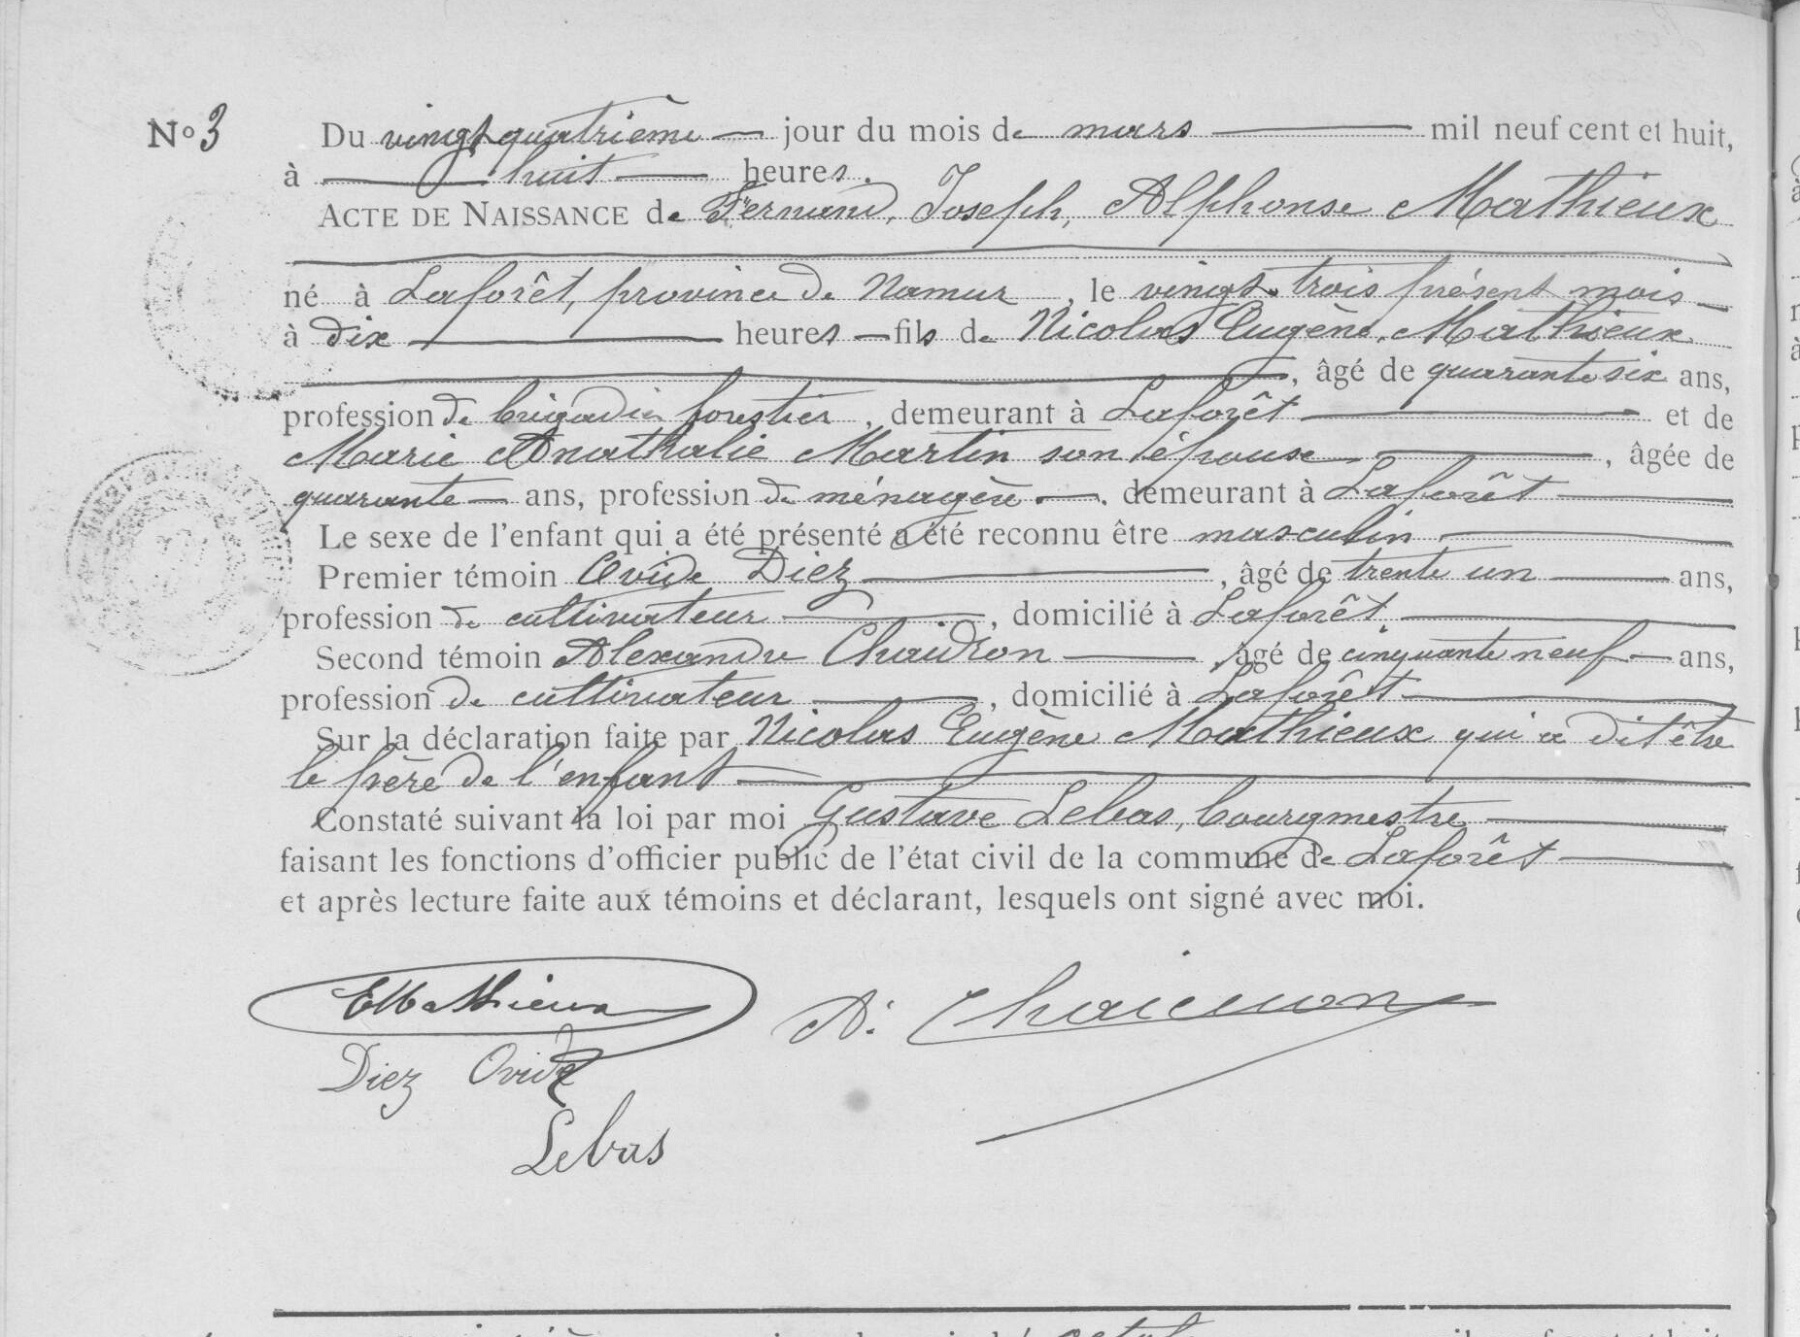 N° 3 Du vingt quatrième jour du mois de mars mil neuf cent et huit,
à huit heures.
ACTE DE NAISSANCE de Fernand, Joseph, Alphonse Mathieux
né à Laforêt, province de Namur, le vingt-trois présent mois
à dix heures fils de Nicolas Eugène Mathieux
, âgé de quarante six ans,
profession de brigadier forestier, demeurant à Laforêt et de
Marie Anathalie Martin son épouse, âgée de
quarante ans, profession de ménagère, demeurant à Laforêt
Le sexe de l'enfant qui a été présenté a été reconnu être masculin
Premier témoin Ovide Diez, âgé de trente un ans,
profession de cultivateur, domicilié à Laforêt
Second témoin Alexandre Chaidron, âgé de cinquante neuf ans,
profession de cultivateur, domicilié à Laforêt
Sur la déclaration faite par Nicolas Eugène Mathieux qui a dit être
le père de l'enfant
Constaté suivant la loi par moi Gustave Lebas, bourgmestre
faisant les fonctions d'officier public de l'état civil de la commune de Laforêt
et après lecture faite aux témoins et déclarant, lesquels ont signé avec moi.
EMathieux A. Chaidron
Diez Ovide
Lebas